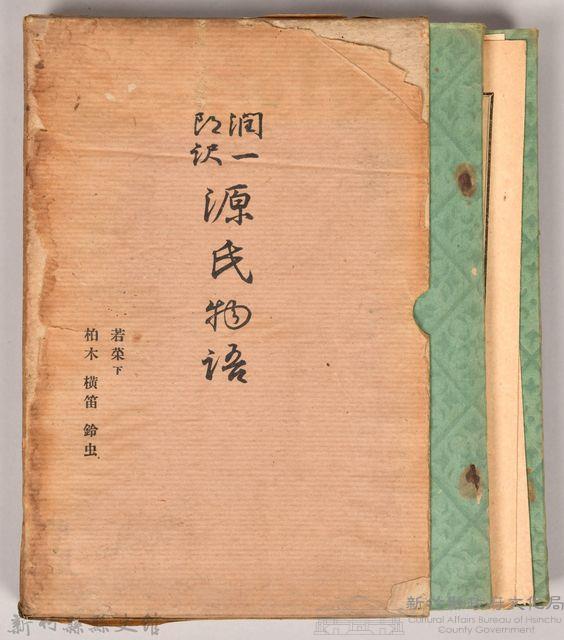 潤一
郎訳
源氏物語
若菜下
柏木 横笛 鈴虫
新竹縣縣史館
新竹縣政府文化局
Cultural Affairs Bureau of Hsinchu
County Government